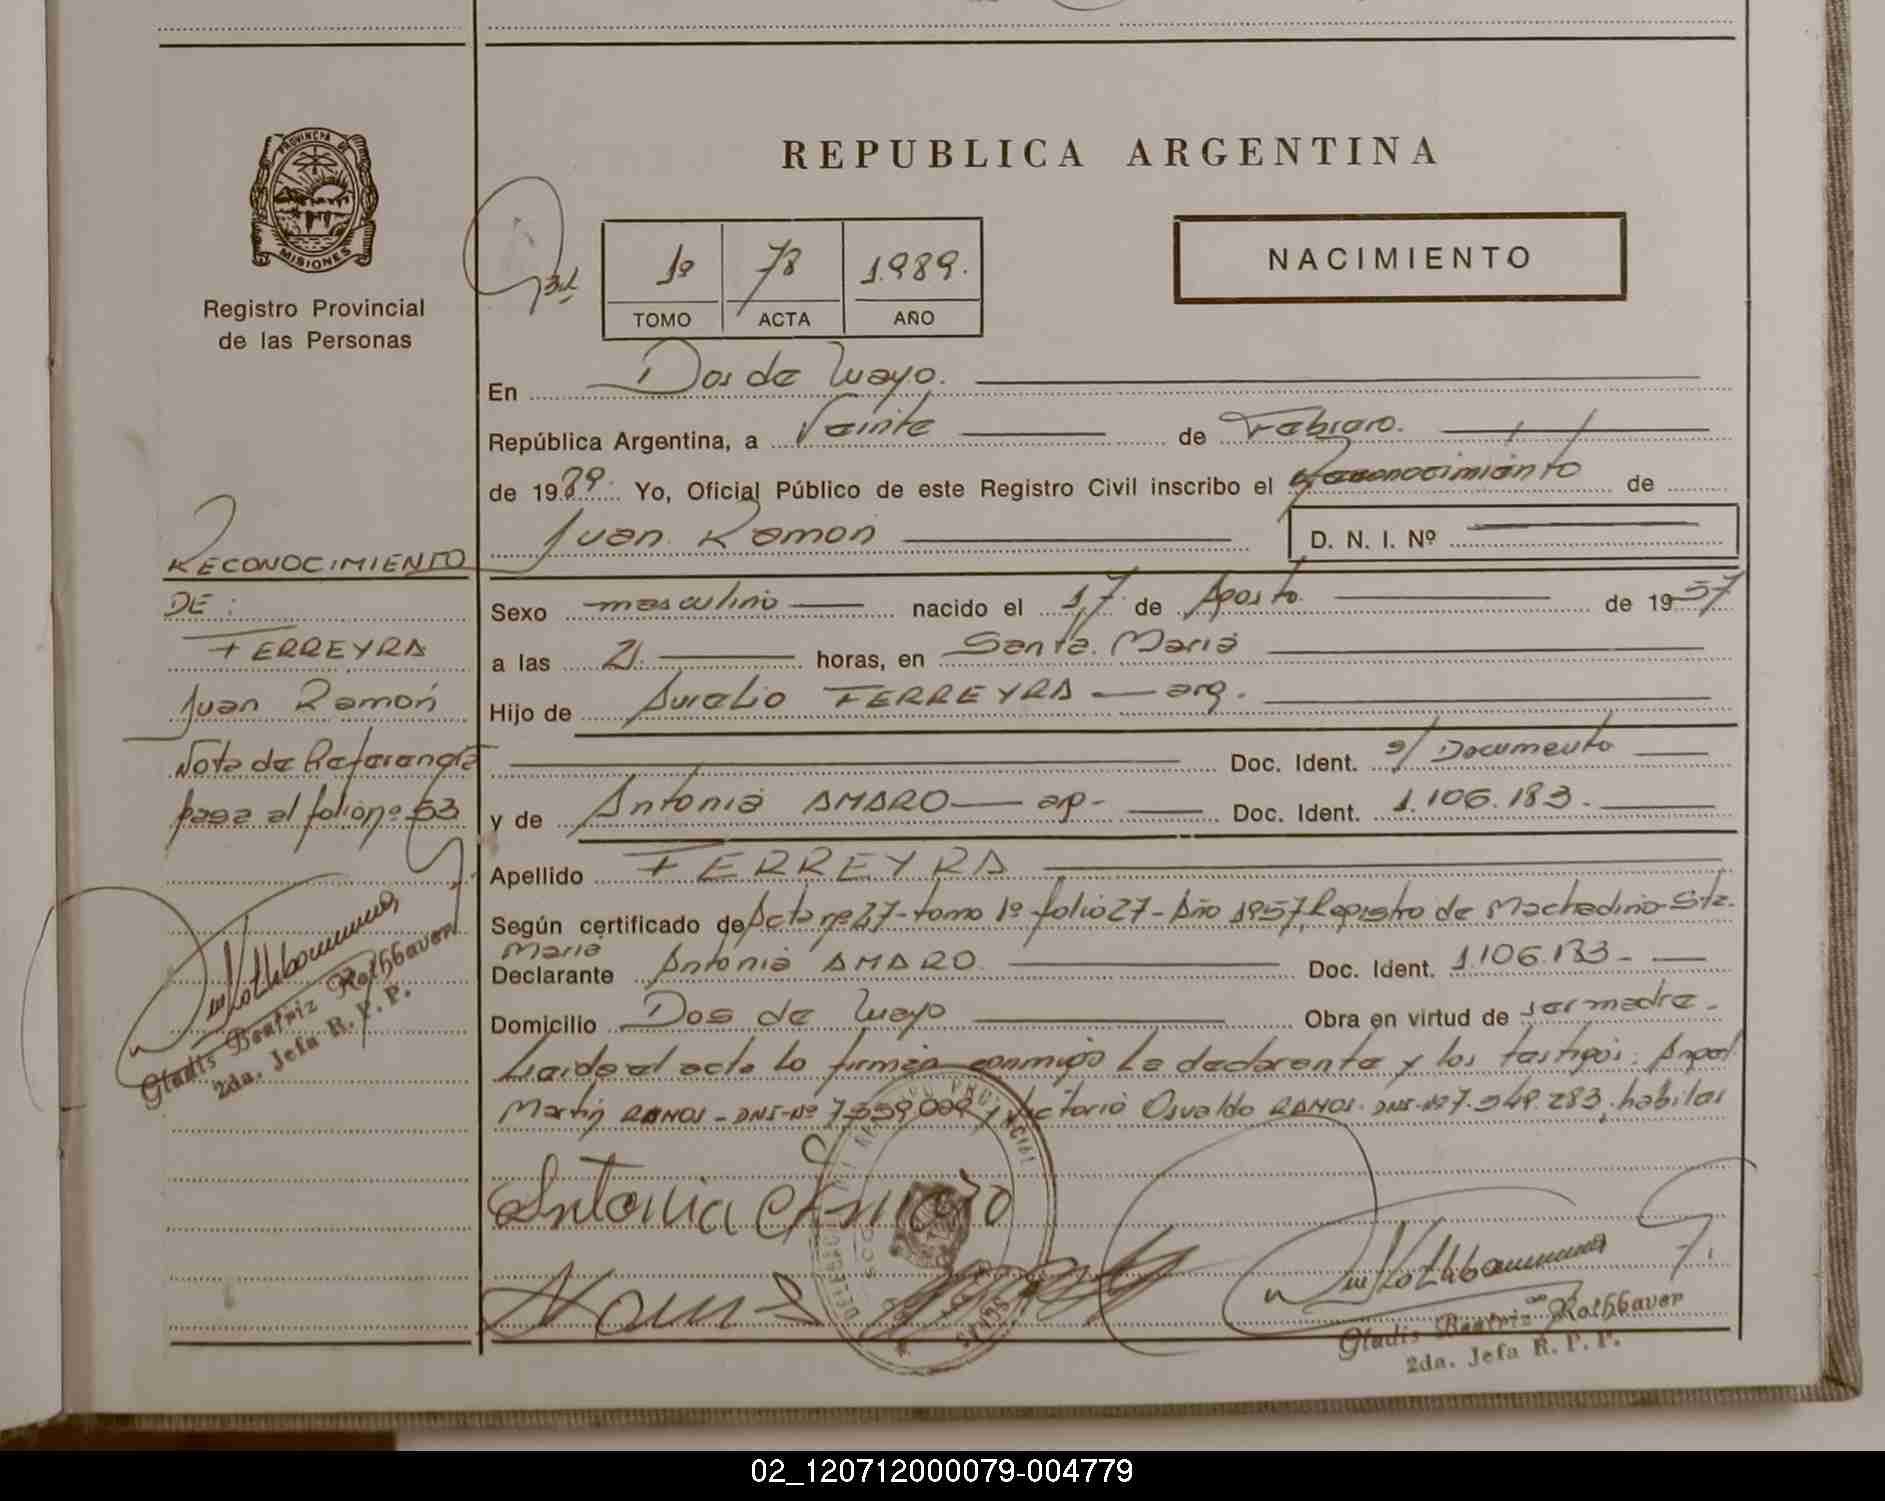 REPUBLICA ARGENTINA
PROVINCIA DE
MISIONES
Registro Provincial
de las Personas
1º 78 1.989.
TOMO ACTA AÑO
NACIMIENTO
En Dos de Mayo.
República Argentina, a Veinte de Febrero.
de 1989. Yo, Oficial Público de este Registro Civil inscribo el Reconocimiento de
Juan Ramon D. N. I. Nº
Sexo masculino nacido el 17 de Agosto de 1957
a las 21. horas, en Santa Maria
Hijo de Aurelio FERREYRA — arg.
Doc. Ident. s/ Documento
y de Antonia AMARO — arg- Doc. Ident. 1.106.183.
Apellido FERREYRA
Según certificado de Acta nº 27-tomo 1º folio 27-Año 1957, Registro de Machadino-Sta.
Maria
Declarante Antonia AMARO Doc. Ident. 1.106.183-
Domicilio Dos de Mayo Obra en virtud de ser madre-
Leida el acta lo firman conmigo la declarante y los testigos: Angel
Martin RAMOS-DNI-Nº 7.559.009 y Victorio Osvaldo RAMOS. DNI-Nº 7.549.283. habiles
RECONOCIMIENTO
DE:
FERREYRA
Juan Ramón
Nota de Referencia
pasa al folio nº 53
Gladis Beatriz Rothbaver
2da. Jefa R. P. P.
Antonia Amaro
Gladis Beatriz Rothbaver
2da. Jefa R. P. P.
02_120712000079-004779